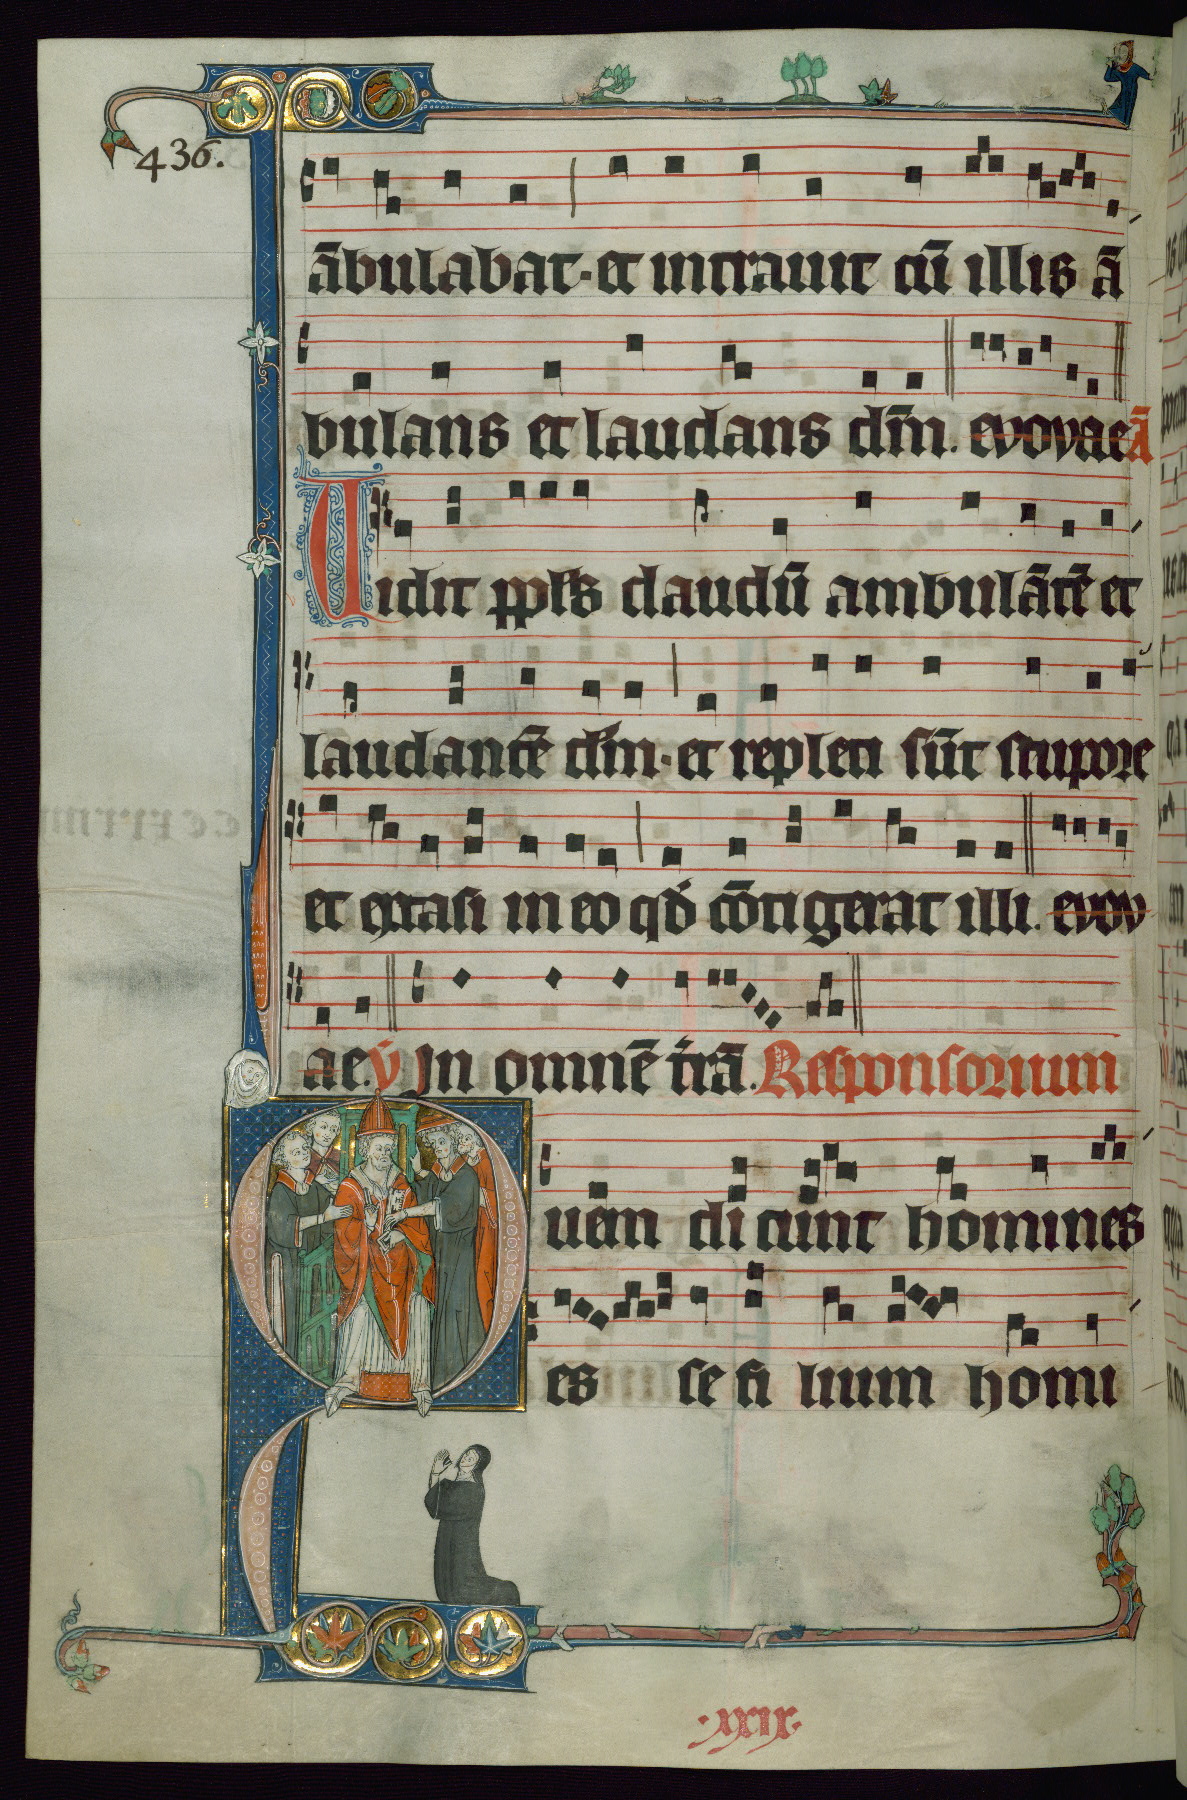 436.
ābulabat·et intrauit cū illis ā
bulans et laudans dn̄m. evovae Ā
Uidit ppl̄s claudū ambulātē et
laudantē dn̄m·et repleti sūt stupore
et extasi in eo qđ cōtigerat illi. evov
ae. V̄ In omnē t̄rā. Responsorium
uem dicunt homines
es se filium homi
·xxix·